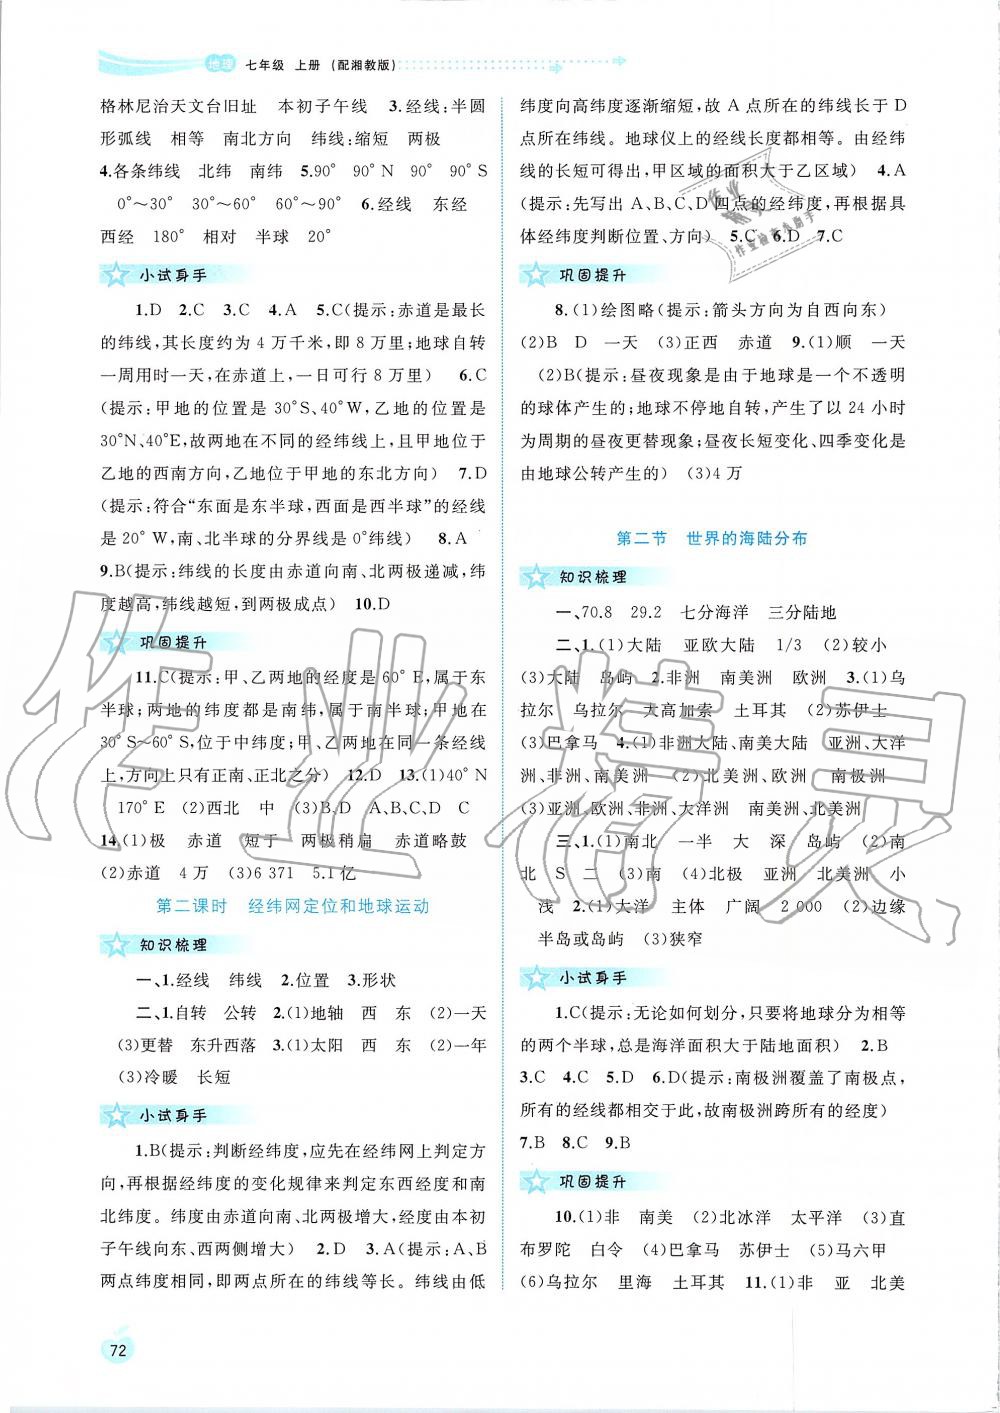 地理 七年级 上册 (配湘教版)
格林尼治天文台旧址 本初子午线 3.经线:半圆
形弧线 相等 南北方向 纬线:缩短 两极
4.各条纬线 北纬 南纬 5.90° 90°N 90° 90°S
0°～30° 30°～60° 60°～90° 6.经线 东经
西经 180° 相对 半球 20°
小试身手
1.D 2.C 3.C 4.A 5.C(提示:赤道是最长
的纬线,其长度约为 4 万千米,即 8 万里;地球自转
一周用时一天,在赤道上,一日可行 8 万里) 6.C
(提示:甲地的位置是 30°S、40°W,乙地的位置是
30°N、40°E,故两地在不同的经纬线上,且甲地位于
乙地的西南方向,乙地位于甲地的东北方向) 7.D
(提示:符合“东面是东半球,西面是西半球”的经线
是 20°W,南、北半球的分界线是 0°纬线) 8.A
9.B(提示:纬线的长度从赤道向南、北两极递减,纬
度越高,纬线越短,到两极成点) 10.D
巩固提升
11.C(提示:甲、乙两地的经度是 60°E,属于东
半球;两地的纬度都是南纬,属于南半球;甲地在
30°S～60°S,位于中纬度;甲、乙两地在同一条经线
上,方向上只有正南、正北之分) 12.D 13.(1)40°N
170°E (2)西北 中 (3)B、D A、B、C、D C
14.(1)极 赤道 短于 两极稍扁 赤道略鼓
(2)赤道 4 万 (3)6 371 5.1亿
第二课时 经纬网定位和地球运动
知识梳理
一、1.经线 纬线 2.位置 3.形状
二、1.自转 公转 2.(1)地轴 西 东 (2)一天
(3)更替 东升西落 3.(1)太阳 西 东 (2)一年
(3)冷暖 长短
小试身手
1.B(提示:判断经纬度,应先在经纬网上判定方
向,再根据经纬度的变化规律来判定东西经度和南
北纬度。纬度由赤道向南、北两极增大,经度由本初
子午线向东、西两侧增大) 2.D 3.A(提示:A、B
两点纬度相同,即两点所在的纬线等长。纬线由低
纬度向高纬度逐渐缩短,故 A 点所在的纬线长于 D
点所在纬线。地球仪上的经线长度都相等。由经纬
线的长短可得出,甲区域的面积大于乙区域) 4.A
(提示:先写出 A、B、C、D 四点的经纬度,再根据具
体经纬度判断位置、方向) 5.C 6.D 7.C
巩固提升
8.(1)绘图略(提示:箭头方向为自西向东)
(2)B D 一天 (3)正西 赤道 9.(1)顺 一天
(2)B(提示:昼夜现象是由于地球是一个不透明
的球体产生的;地球不停地自转,产生了以 24 小时
为周期的昼夜更替现象;昼夜长短变化、四季变化是
由地球公转产生的) (3)4万
第二节 世界的海陆分布
知识梳理
一、70.8 29.2 七分海洋 三分陆地
二、1.(1)大陆 亚欧大陆 1/3 (2)较小
(3)大陆 岛屿 2.非洲 南美洲 欧洲 3.(1)乌
拉尔 乌拉尔 大高加索 土耳其 (2)苏伊士
(3)巴拿马 4.(1)非洲大陆、南美大陆 亚洲、大洋
洲、北美洲、欧洲、非洲 (2)北美洲、欧洲 南极洲
(3)亚洲、欧洲、非洲、大洋洲 南美洲、北美洲
三、1.(1)南北 一半 大 深 岛屿 (2)南
北 S 二 (3)南 (4)北极 亚洲 北美洲 小
浅 2.(1)大洋 主体 广阔 2 000 (2)边缘
半岛或岛屿 (3)狭窄
小试身手
1.C(提示:无论如何划分,只要将地球分为相等
的两个半球,总是海洋面积大于陆地面积) 2.B
3.C 4.C 5.D 6.D(提示:南极洲覆盖了南极点,
所有的经线都相交于此,故南极洲跨所有的经度)
7.B 8.C 9.B
巩固提升
10.(1)非 南美 (2)北冰洋 太平洋 (3)直
布罗陀 白令 (4)巴拿马 苏伊士 (5)马六甲
(6)乌拉尔 里海 土耳其 11.(1)非 亚 北美
72
作业精灵